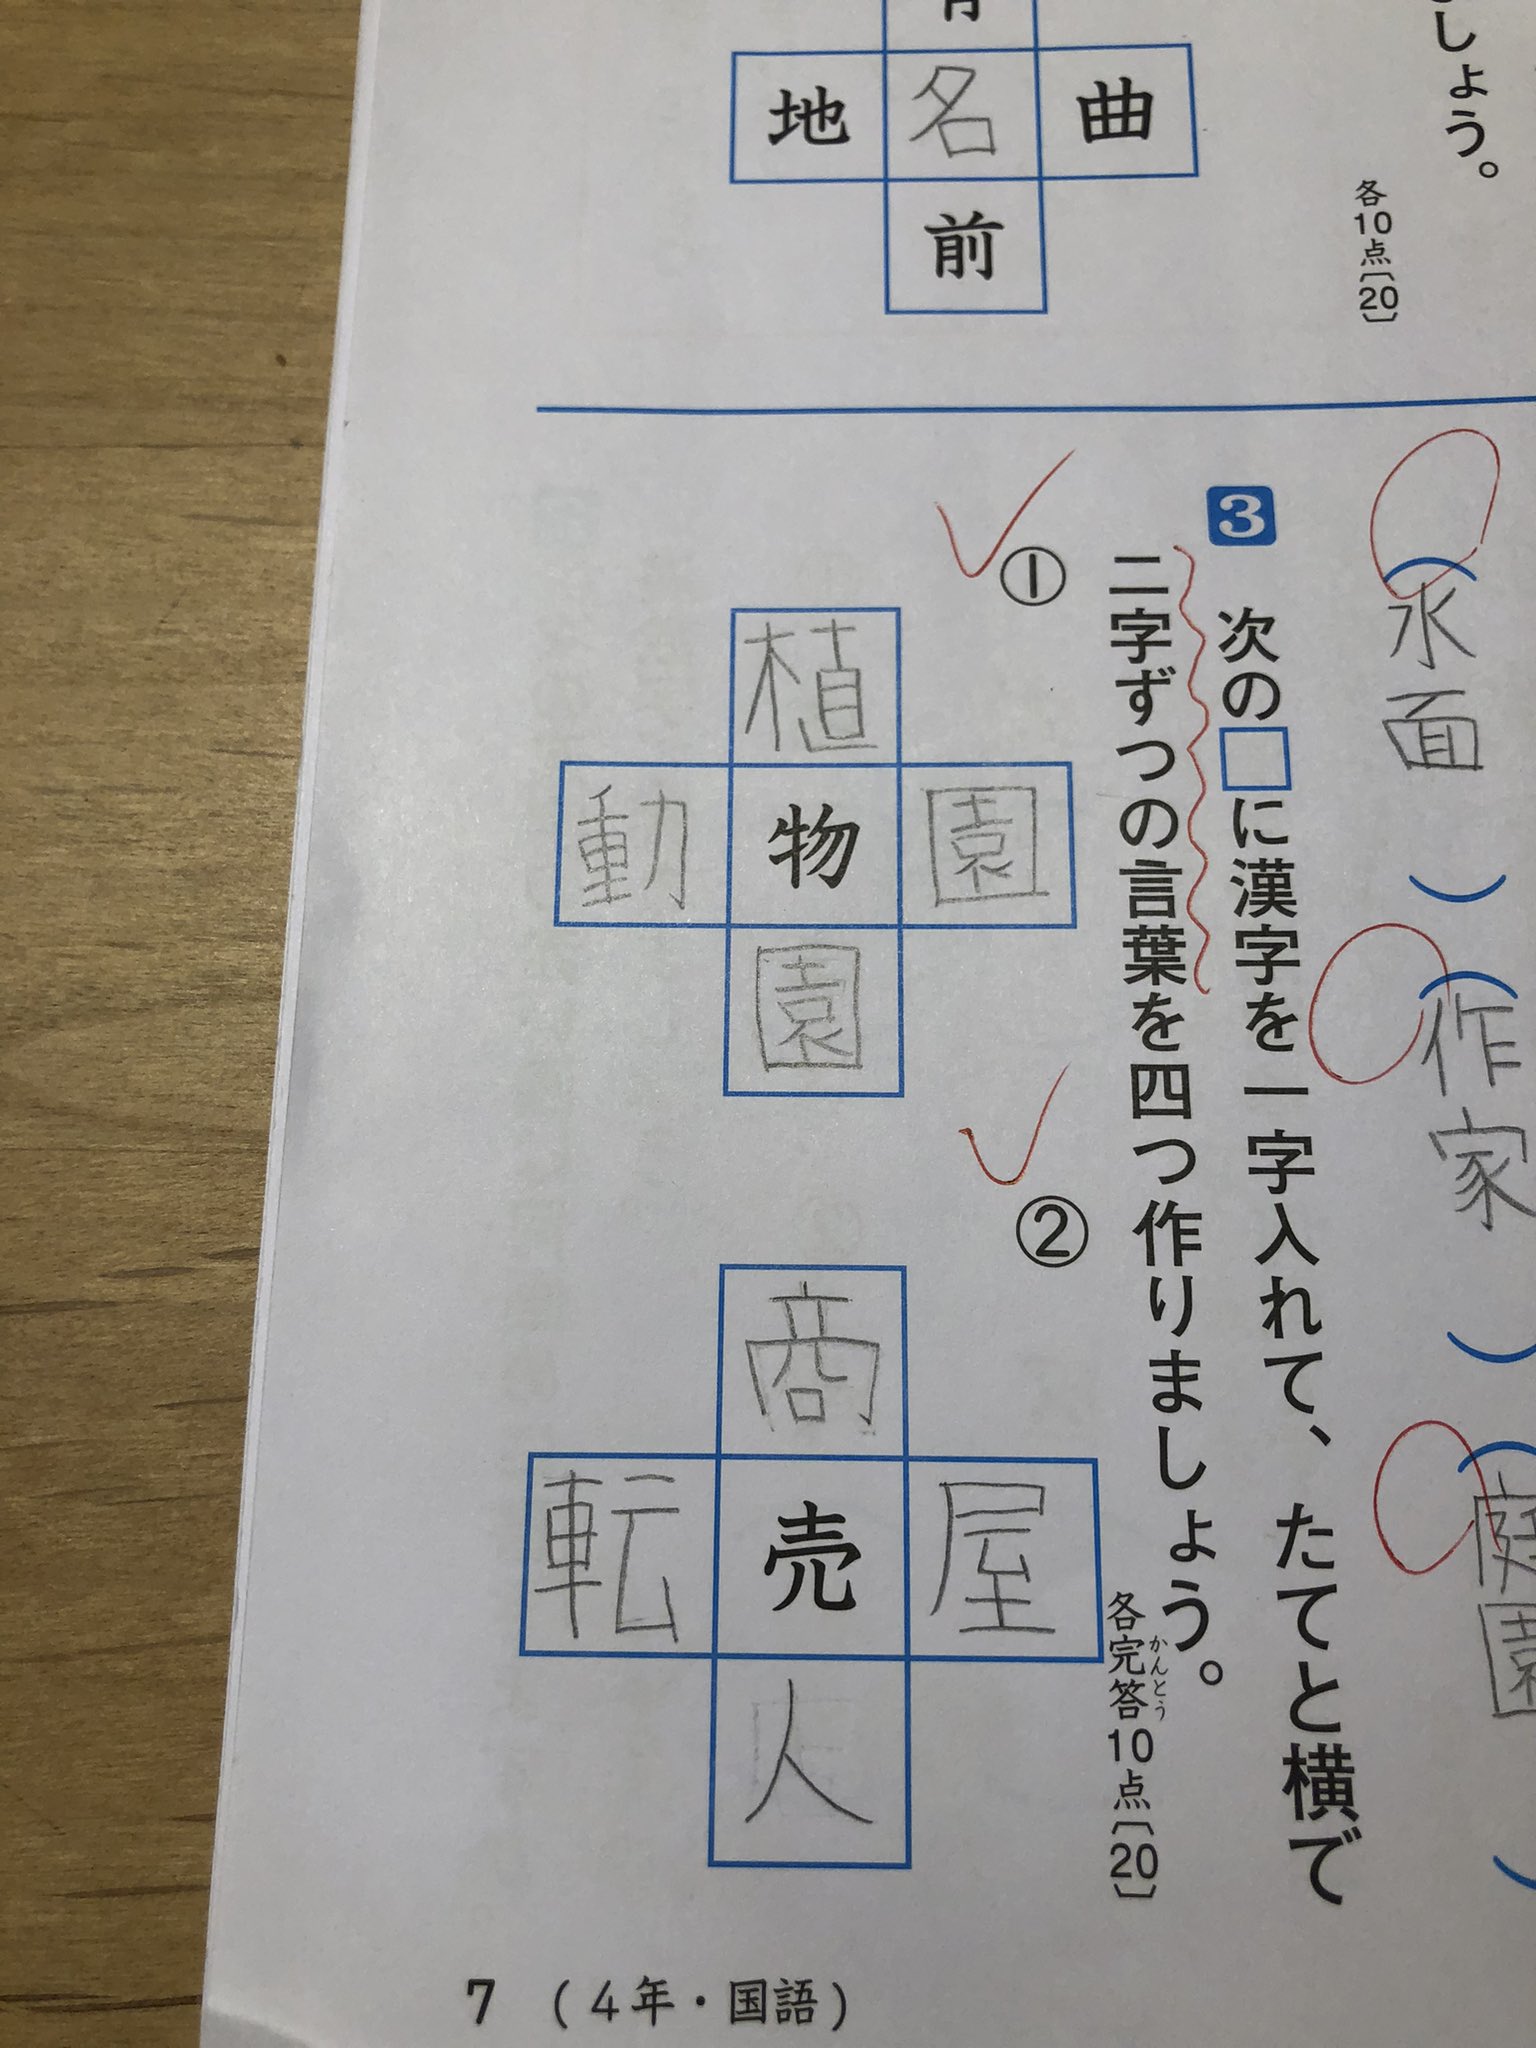 しょう。
各10点〔20〕
名
地
曲
前
水面
作家
庭園
3
次の□に漢字を一字入れて、たてと横で
二字ずつの言葉を四つ作りましょう。
各完答10点〔20〕
かんとう
①
植
動物園
園
②
商
転売屋
人
7 (4年・国語)